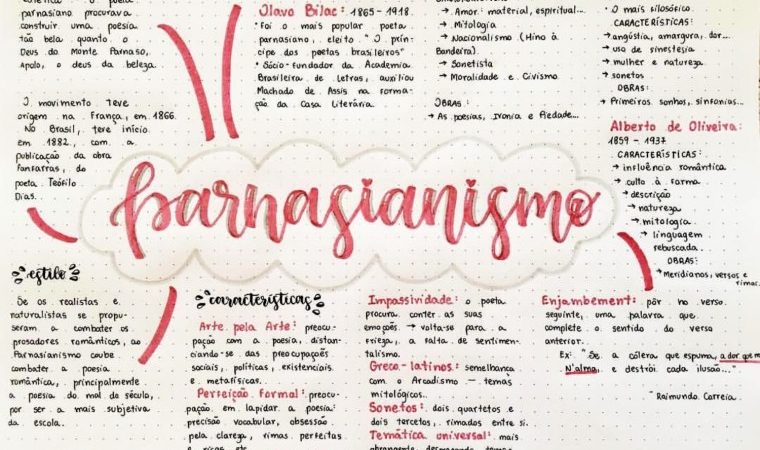 parnasiano procurava
construir uma poesia
tão bela quanto o
Deus do Monte Parnaso,
Apolo, o deus da beleza.
O movimento teve
origem na França, em 1866.
No Brasil, teve início
em 1882, com a
publicação da obra
Fanfarras, do
poeta Teófilo
Dias.
Olavo Bilac: 1865 - 1918.
• Foi o mais popular poeta
parnasiano, eleito "O prín-
cipe dos poetas brasileiros"
• Sócio-fundador da Academia
Brasileira de Letras, auxiliou
Machado de Assis na forma-
ção da Casa Literária.
→ Amor: material, espiritual...
→ Mitologia
→ Nacionalismo (Hino à
Bandeira).
→ Sonetista
→ Moralidade e Civismo.
OBRAS:
→ As poesias, Ironia e Piedade...
O mais filosófico.
CARACTERÍSTICAS:
→ angústia, amargura, dor...
→ uso de sinestesia
→ mulher e natureza
→ sonetos
OBRAS:
→ Primeiros sonhos, sinfonias...
Alberto de Oliveira:
1859 - 1937
CARACTERÍSTICAS:
→ influência romântica
→ culto à forma
→ descrição
→ natureza
→ mitologia
→ linguagem
rebuscada.
OBRAS:
→ Meridianos, versos e
rimas.
parnasianismo
estilo
Se os realistas e
naturalistas se propu-
seram a combater os
prosadores românticos, ao
Parnasianismo coube
combater a poesia
romântica, principalmente
a poesia do mal do século,
por ser a mais subjetiva
da escola.
características
Arte pela Arte: preocu-
pação com a poesia, distan-
ciando-se das preocupações
sociais, políticas, existenciais
e metafísicas.
Perfeição Formal: preocu-
pação em lapidar a poesia:
precisão vocabular, obsessão
pela clareza, rimas perfeitas
e ricas, etc.
Impassividade: o poeta
procura conter as suas
emoções. → volta-se para a
frieza, a falta de sentimen-
talismo.
Greco-latinos: semelhança
com o Arcadismo — temas
mitológicos.
Sonetos: dois quartetos e
dois tercetos, rimados entre si.
Temática universal: mais
abrangente,
Enjambement: pôr no verso
seguinte, uma palavra que
complete o sentido do verso
anterior.
Ex: "Se a cólera que espuma, a dor que m
N'alma, e destrói cada ilusão..."
Raimundo Correia.